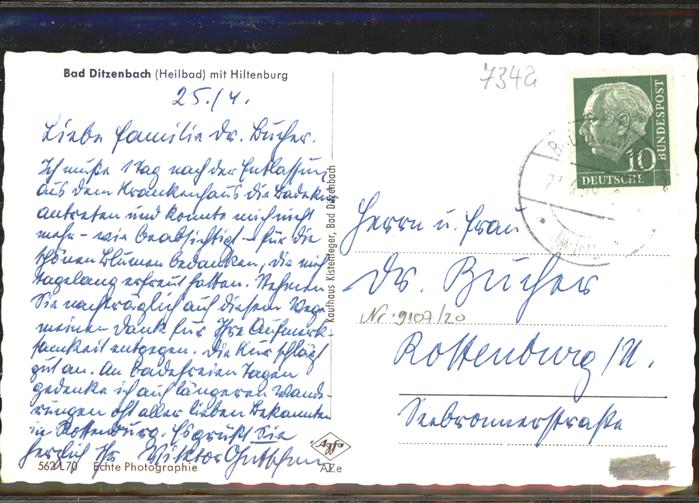 Bad Ditzenbach (Heilbad) mit Hiltenburg
25./4.
Liebe Familie Dr. Bucher.
Ich mußte 1 Tag nach der Entlassung
aus dem Krankenhaus die Badekur
antreten und konnte mich nicht
mehr - wie beabsichtigt - für die
schönen Blumen bedanken, die mich
tagelang erfreut hatten. Nehmen
Sie nachträglich auf diesem Wege
meinen Dank für Ihre Aufmerk-
samkeit entgegen. Die Kur schlägt
gut an. An badefreien Tagen
gedenke ich auf längeren Wande-
rungen oft aller lieben Bekannten
in Rottenburg. Es grüßt Sie
herzlich Ihr Wiktor
562 L70 Echte Photographie
Kaufhaus Kistenfeger, Bad Ditzenbach
Agfa
AZe
7342
10
DEUTSCHE
BUNDESPOST
Herrn u. Frau
Dr. Bucher
Nr. 9107/20
Rottenburg/N.
Seebronnerstraße